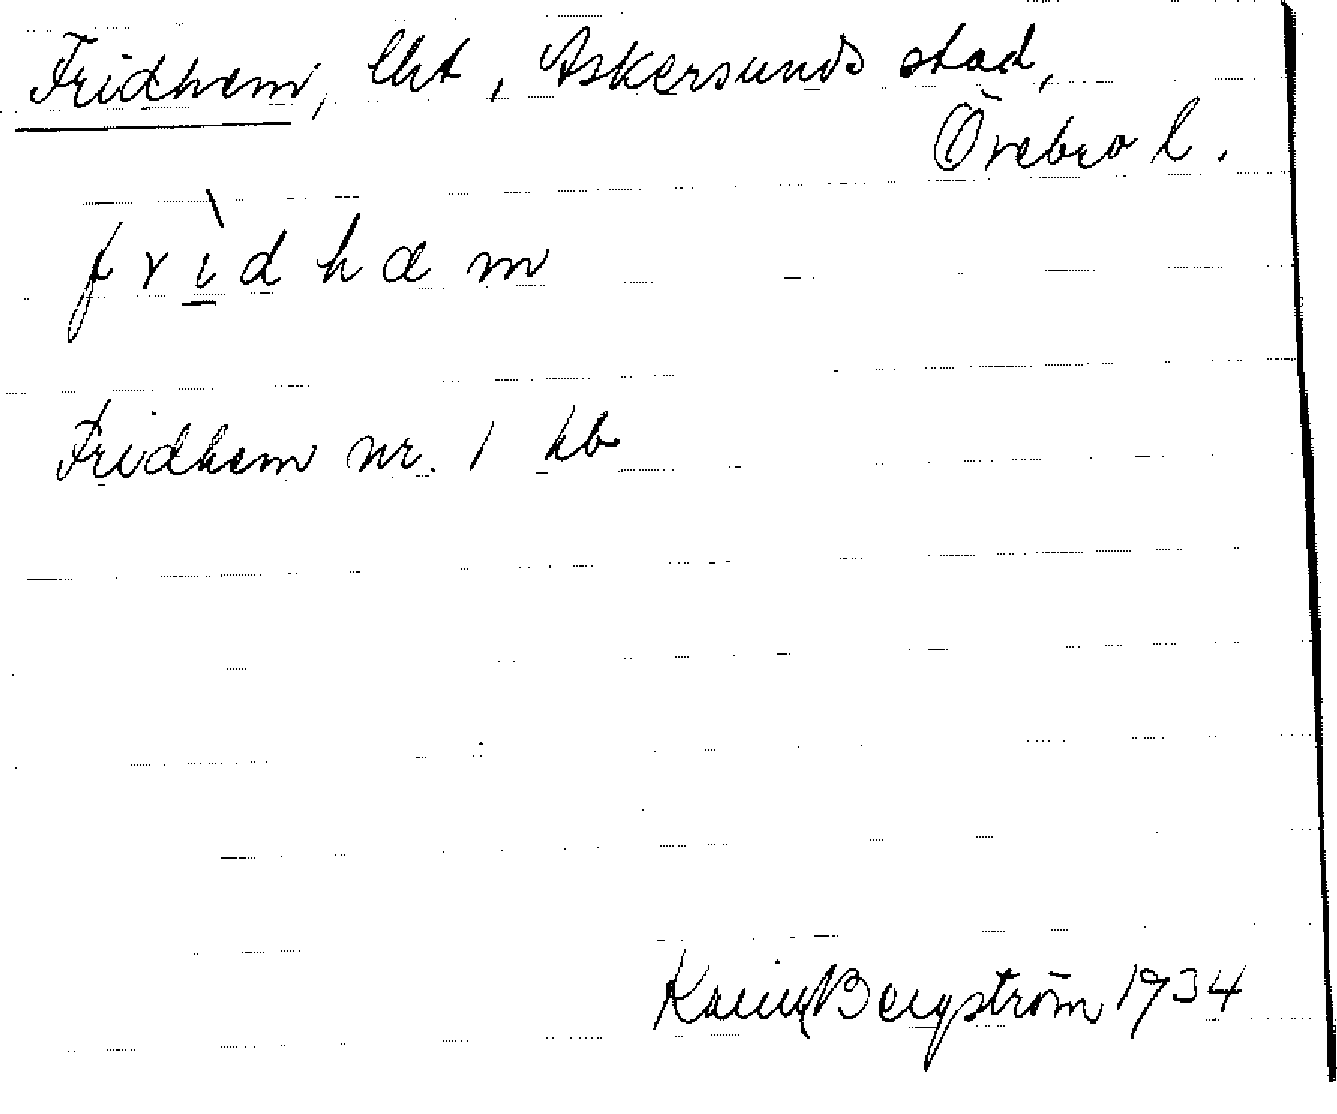 Fridhem, lht, Askersunds stad,
Örebro l.
frì̲dhæm
Fridhem nr. 1 kb
Karin Bergström 1934